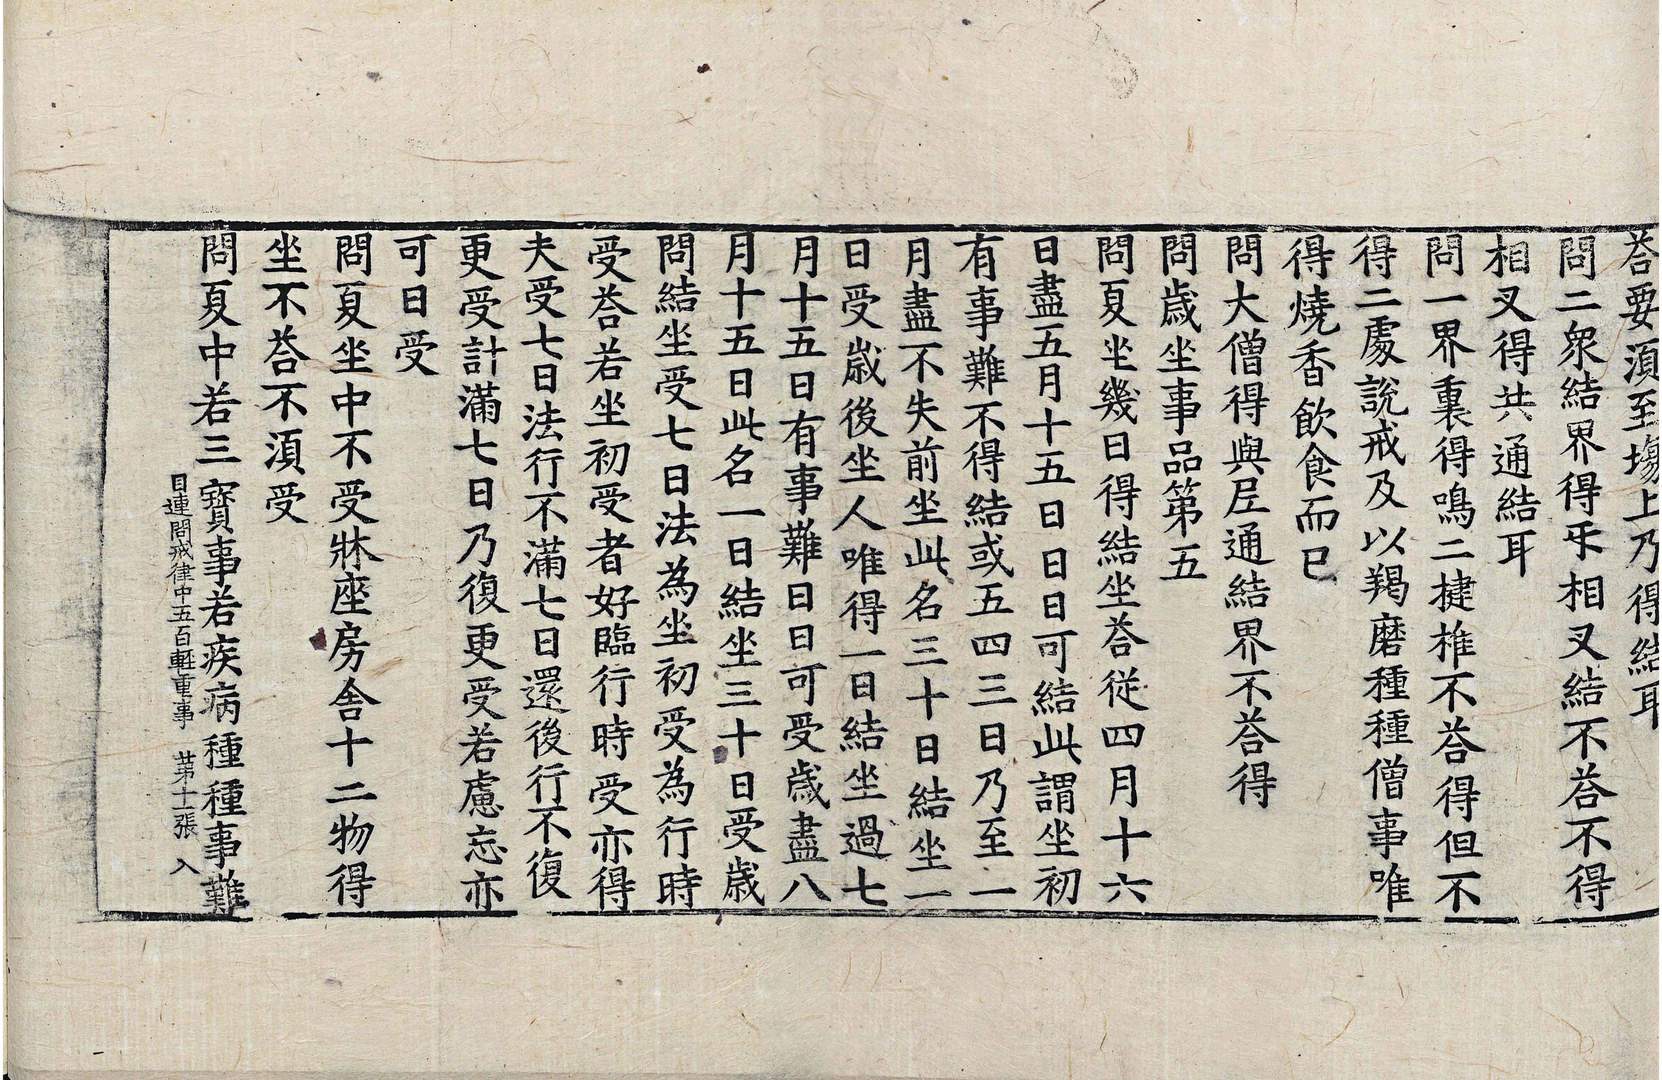 荅要湏至塲上乃得結耳
問二衆結界得𭅺相叉結不荅不得
相叉得共通結耳
問一界裏得鳴二揵椎不荅得但不
得二處說戒及以羯磨種種僧事唯
得燒香飲食而已
問大僧得與尼通結界不荅得
問歲坐事品第五
問夏坐幾日得結坐荅從四月十六
日盡五月十五日日日可結此謂坐初
有事難不得結或五四三日乃至一
月盡不失前坐此名三十日結坐一
日受歲後坐人唯得一日結坐過七
月十五日有事難日日可受歲盡八
月十五日此名一日結坐三十日受歲
問結坐受七日法為坐初受為行時
受荅若坐初受者好臨行時受亦得
夫受七日法行不滿七日還後行不復
更受計滿七日乃復更受若慮忘亦
可日受
問夏坐中不受牀座房舍十二物得
坐不荅不湏受
問夏中若三寶事若疾病種種事難
目連問戒律中五百輕重事 苐十張 入